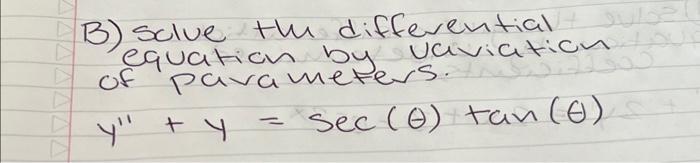 B) solve the differential
equation by variation
of parameters.
y'' + y = sec(θ) tan(θ)